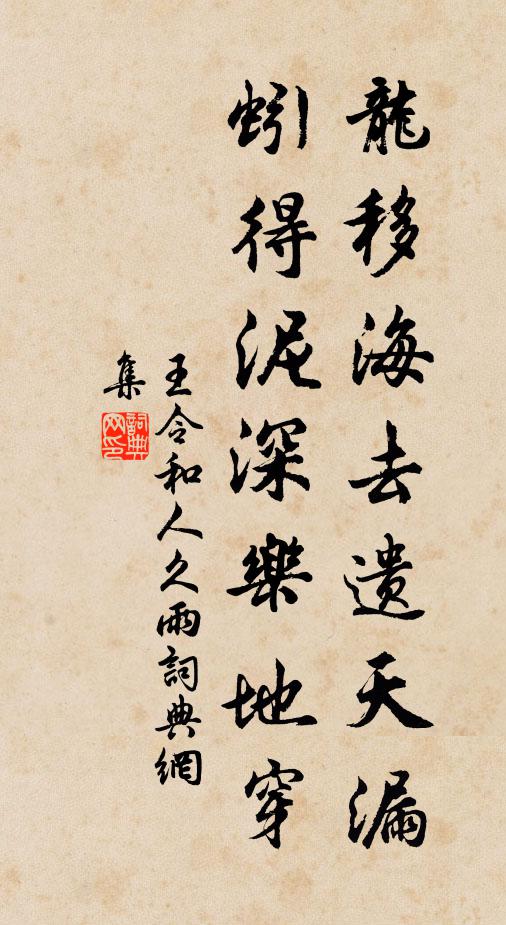 龍移海去遺天漏
蚓得泥深樂地穿
王令和人久雨詞典網
集
詞典网印